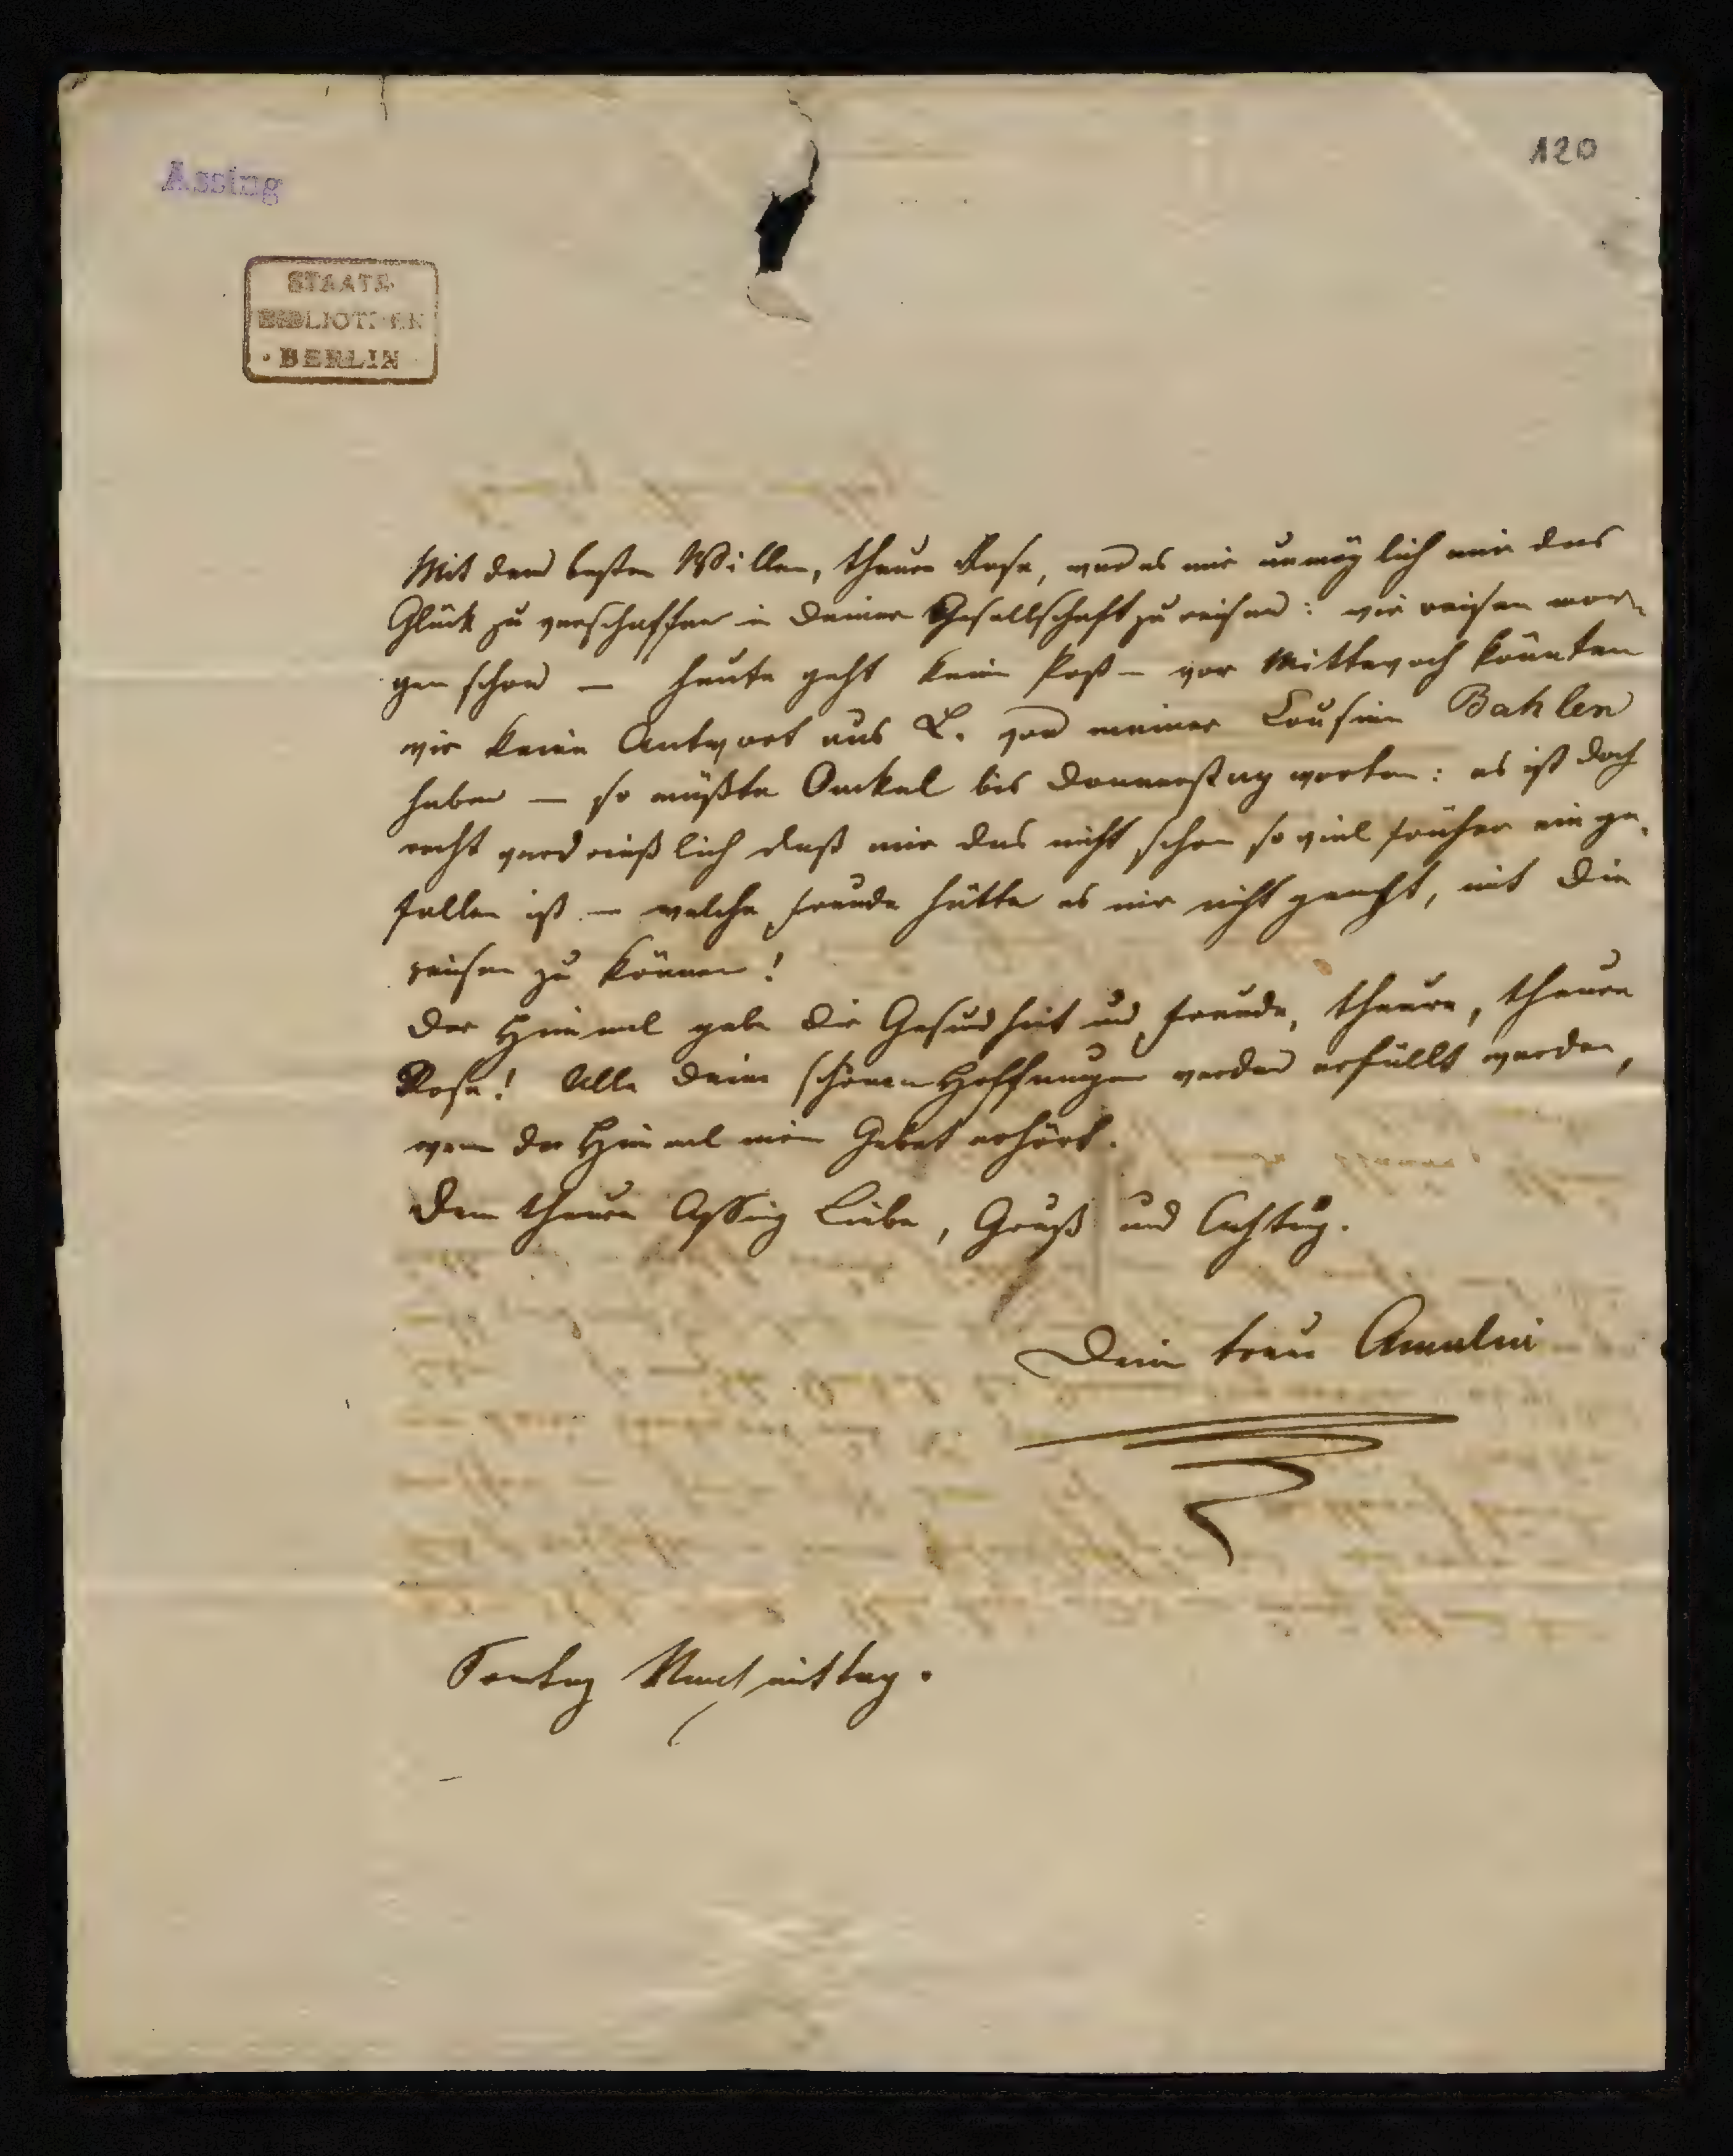 120
Assing
STAATS-
BIBLIOTHEK
· BERLIN ·
Mit dem besten Willen, theure Rosa, war es mir unmöglich mir das
Glück zu verschaffen in Deiner Gesellschaft zu reisen: wir reisen mor-
gen schon — heute geht keine Post — vor Mittewoch könnten
wir keine Antwort aus L. von meiner Cousine Bahlen
haben — so müßte Onkel bis Donnerstag warten: es ist doch
recht verdrießlich daß mir das nicht schon so viel früher einge-
fallen ist — welche Freude hätte es mir nicht gemacht, mit Dir
reisen zu können!
Der Himmel gebe Dir Gesundheit und Freude, theure, theure
Rosa! Alle Deine schönen Hoffnungen werden erfüllt werden,
wenn der Himmel mein Gebet erhört.
Dem theuren Assing Liebe, Gruß und Achtung.
Deine treue Amalia
Sontag Nachmittag.